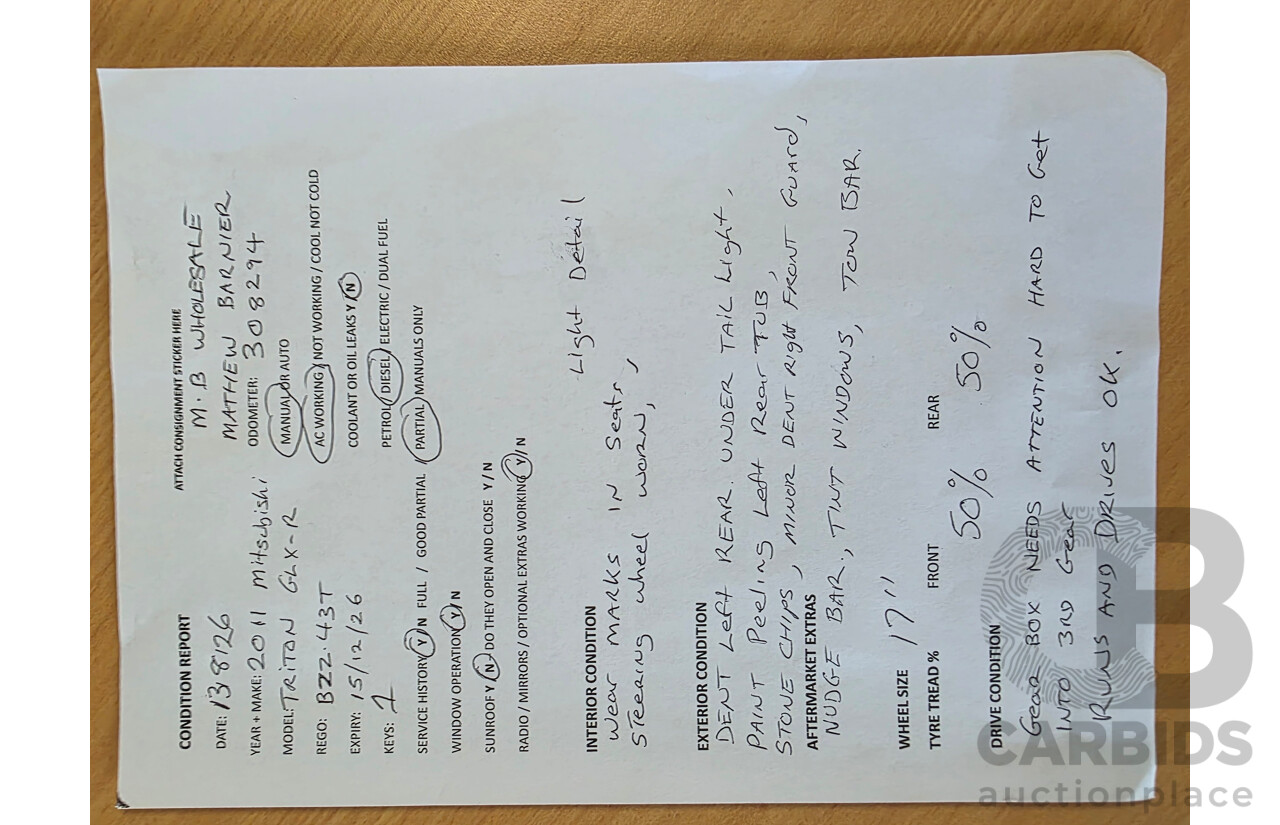 CONDITION REPORT
ATTACH CONSIGNMENT STICKER HERE
DATE: 13 8 26
M.B WHOLESALE
YEAR + MAKE: 2011 Mitsubishi
MATHEW BARNIER
ODOMETER: 308294
MODEL: TRITON GLX-R
MANUAL OR AUTO
REGO: BZZ.43T
AC WORKING / NOT WORKING / COOL NOT COLD
EXPIRY: 15/12/26
COOLANT OR OIL LEAKS Y / N
KEYS: 1
PETROL / DIESEL / ELECTRIC / DUAL FUEL
SERVICE HISTORY Y / N FULL / GOOD PARTIAL / PARTIAL / MANUALS ONLY
WINDOW OPERATION Y / N
SUNROOF Y / N DO THEY OPEN AND CLOSE Y / N
RADIO / MIRRORS / OPTIONAL EXTRAS WORKING Y / N
INTERIOR CONDITION
Light Detail
Wear MARKS IN Seats,
Steering wheel WORN,
EXTERIOR CONDITION
DENT Left REAR. UNDER TAIL Light,
PAINT Peeling Left Rear TUB,
STONE CHIPS, MINOR DENT Right FRONT GUARD,
AFTERMARKET EXTRAS
NUDGE BAR., TINT WINDOWS, TOW BAR.
WHEEL SIZE 17"
TYRE TREAD % FRONT 50% REAR 50%
DRIVE CONDITION
Gear BOX NEEDS ATTENTION HARD TO Get
INTO 3RD Gear
RUNS AND DRIVES OK.
CARBIDS
auctionplace